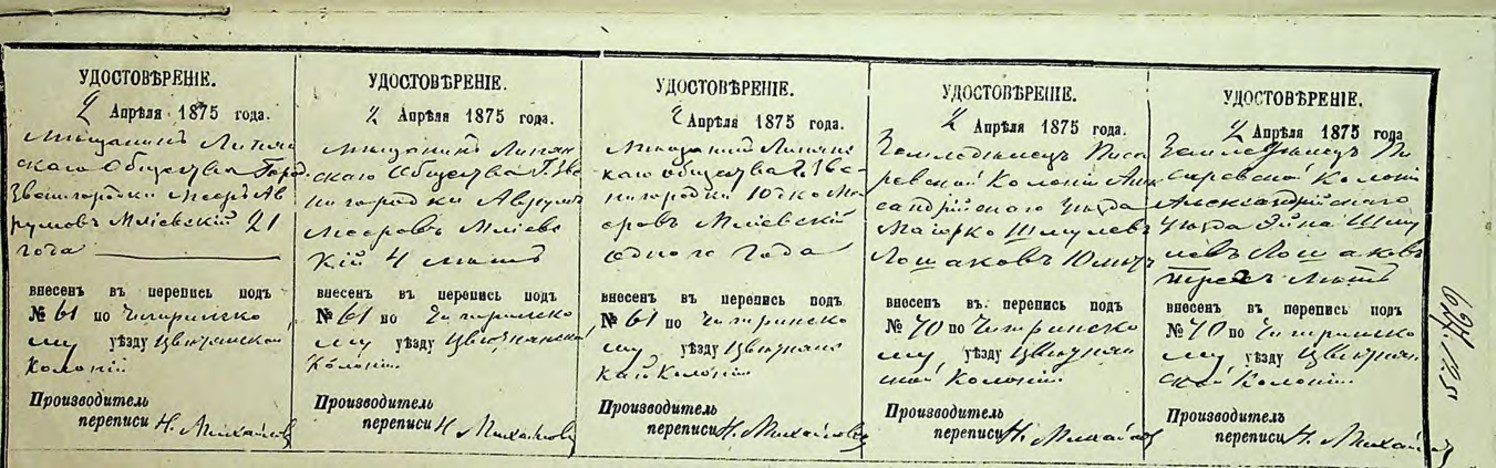 УДОСТОВѢРЕНІЕ.
2 Апрѣля 1875 года.
Мѣщанинъ Липян
скаго Общества Гор.
Звенигородки Мееръ Ав
румовъ Мліевскій 21
года
внесенъ въ перепись подъ
№ 61 по Чигиринско
му уѣзду Цвѣтнянской
Колоніи
Производитель
переписи Н. Михайлов
УДОСТОВѢРЕНІЕ.
2 Апрѣля 1875 года.
Мѣщанинъ Липян
скаго Общества Г. Зве
нигородки Аврумъ
Мееровъ Мліевс
кій 4 лѣтъ
внесенъ въ перепись подъ
№ 61 по Чигиринско
му уѣзду Цвѣтнянской
Колоніи
Производитель
переписи Н. Михайлов
УДОСТОВѢРЕНІЕ.
2 Апрѣля 1875 года.
Мѣщанинъ Липянс
каго общества Г. Зве
нигородки Юдко Ме
еровъ Мліевскій
одного года
внесенъ въ перепись подъ
№ 61 по Чигиринско
му уѣзду Цвѣтнянс
кой Колоніи
Производитель
переписи Н. Михайлов
УДОСТОВѢРЕНІЕ.
2 Апрѣля 1875 года.
Земледѣлецъ Писа
ревской Колоніи Алек
сандрійскаго Уѣзда
Маіорко Шмулевъ
Лошаковъ 10 лѣтъ
внесенъ въ перепись подъ
№ 70 по Чигиринско
му уѣзду Цвѣтнян
ской Колоніи
Производитель
переписи Н. Михайлов
УДОСТОВѢРЕНІЕ.
2 Апрѣля 1875 года
Земледѣлецъ Пи
саревской Колоніи
Александрійскаго
Уѣзда Эйна Шму
левъ Лошаковъ
трехъ лѣтъ
внесенъ въ перепись подъ
№ 70 по Чигиринско
му уѣзду Цвѣтнян
ской Колоніи
Производитель
переписи Н. Михайлов